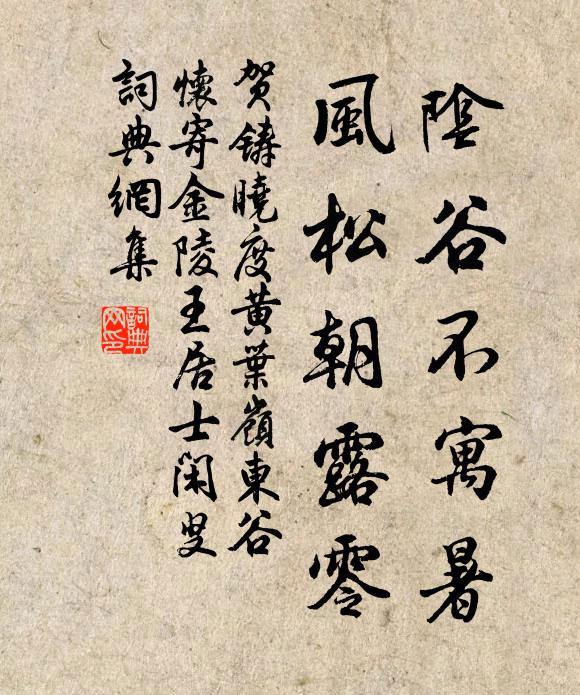 陰谷不寓暑
風松朝露零
賀鑄曉度黃葉嶺東谷
懷寄金陵王居士閑叟
詞典網集
詞典网印